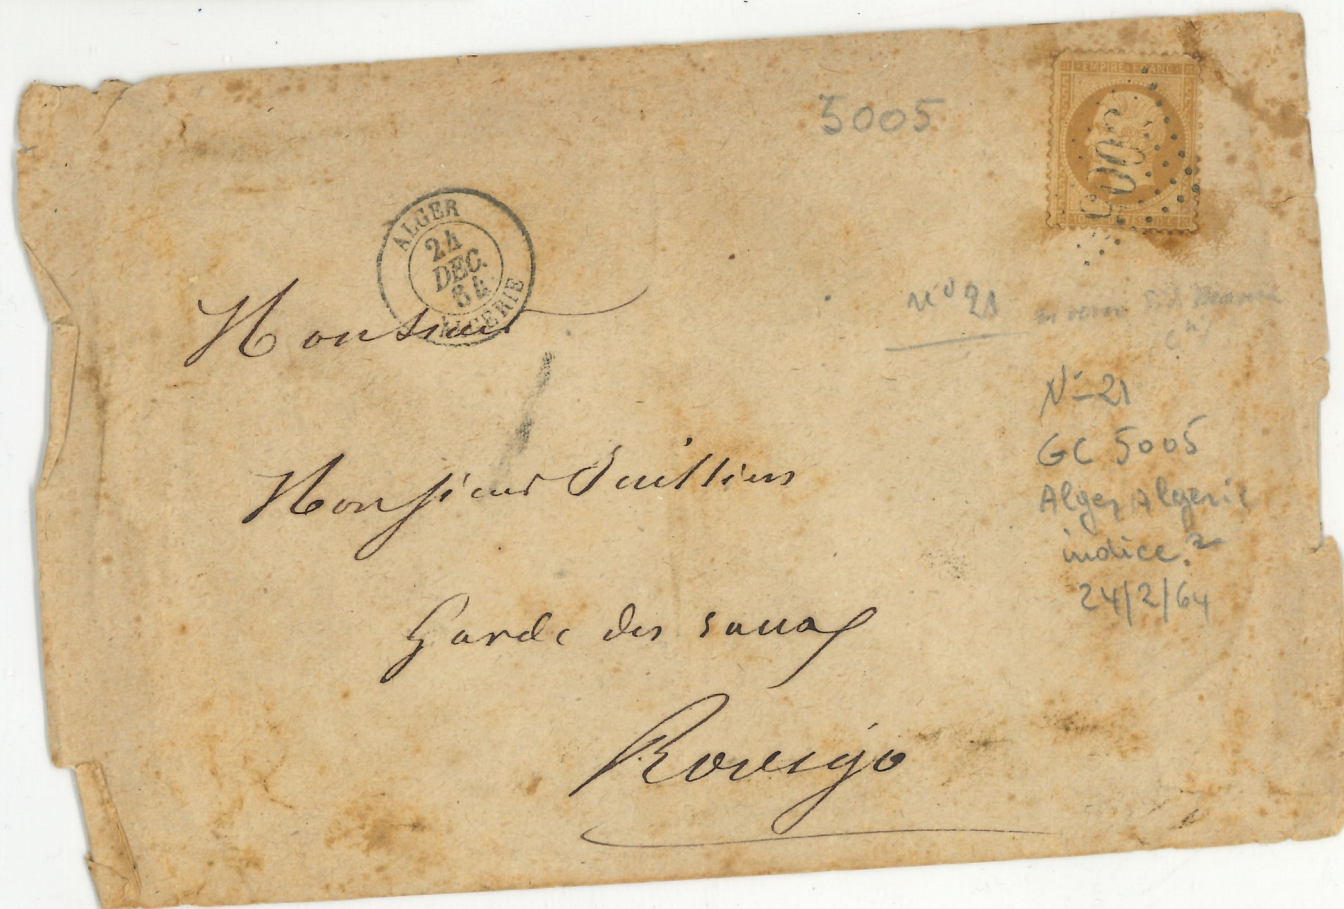 5005
EMPIRE FRANC
5005
ALGER
24
DEC.
64
ALGERIE
Monsieur
n° 21
Monsieur
N° 21
GC 5005
Alger Algerie
indice 2
24/2/64
Garde des eaux
Rovigo